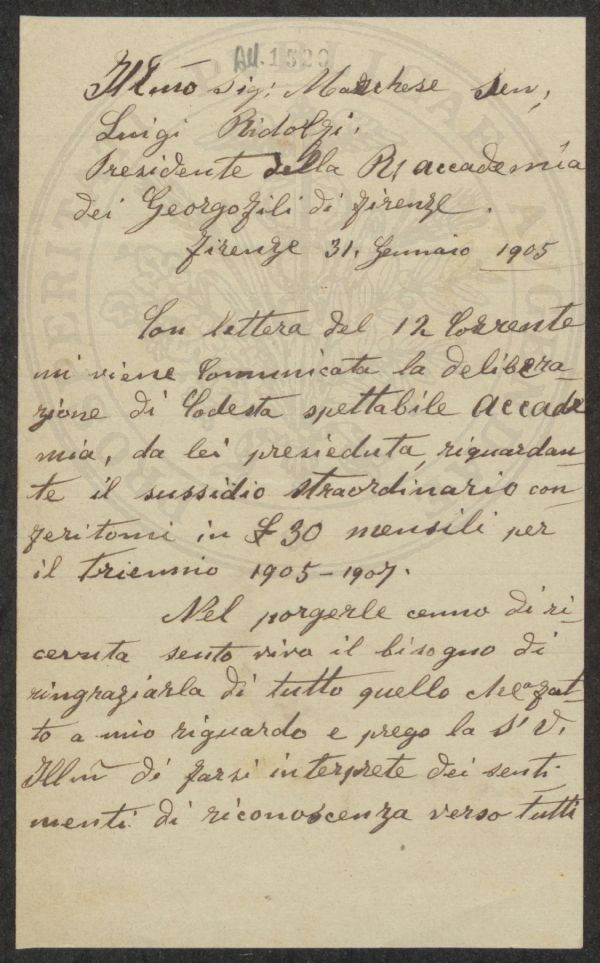 All. 1520
Illmo Sig: Marchese Sen,
Luigi Ridolfi.
Presidente della R. accademia
dei Georgofili di Firenze.
Firenze 31. Gennaio 1905
Con lettera del 12 Corrente
mi viene Comunicata la delibera-
zione di Codesta spettabile accade
mia, da lei presieduta, riguardan-
te il sussidio straordinario con
feritomi in £ 30 mensili per
il triennio 1905-1907.
Nel porgerle cenno di ri-
cevuta sento vivo il bisogno di
ringraziarla di tutto quello che a fat-
to a mio riguardo e prego la S. V.
Illm̃ di farsi interprete dei senti-
menti di riconoscenza verso tutti